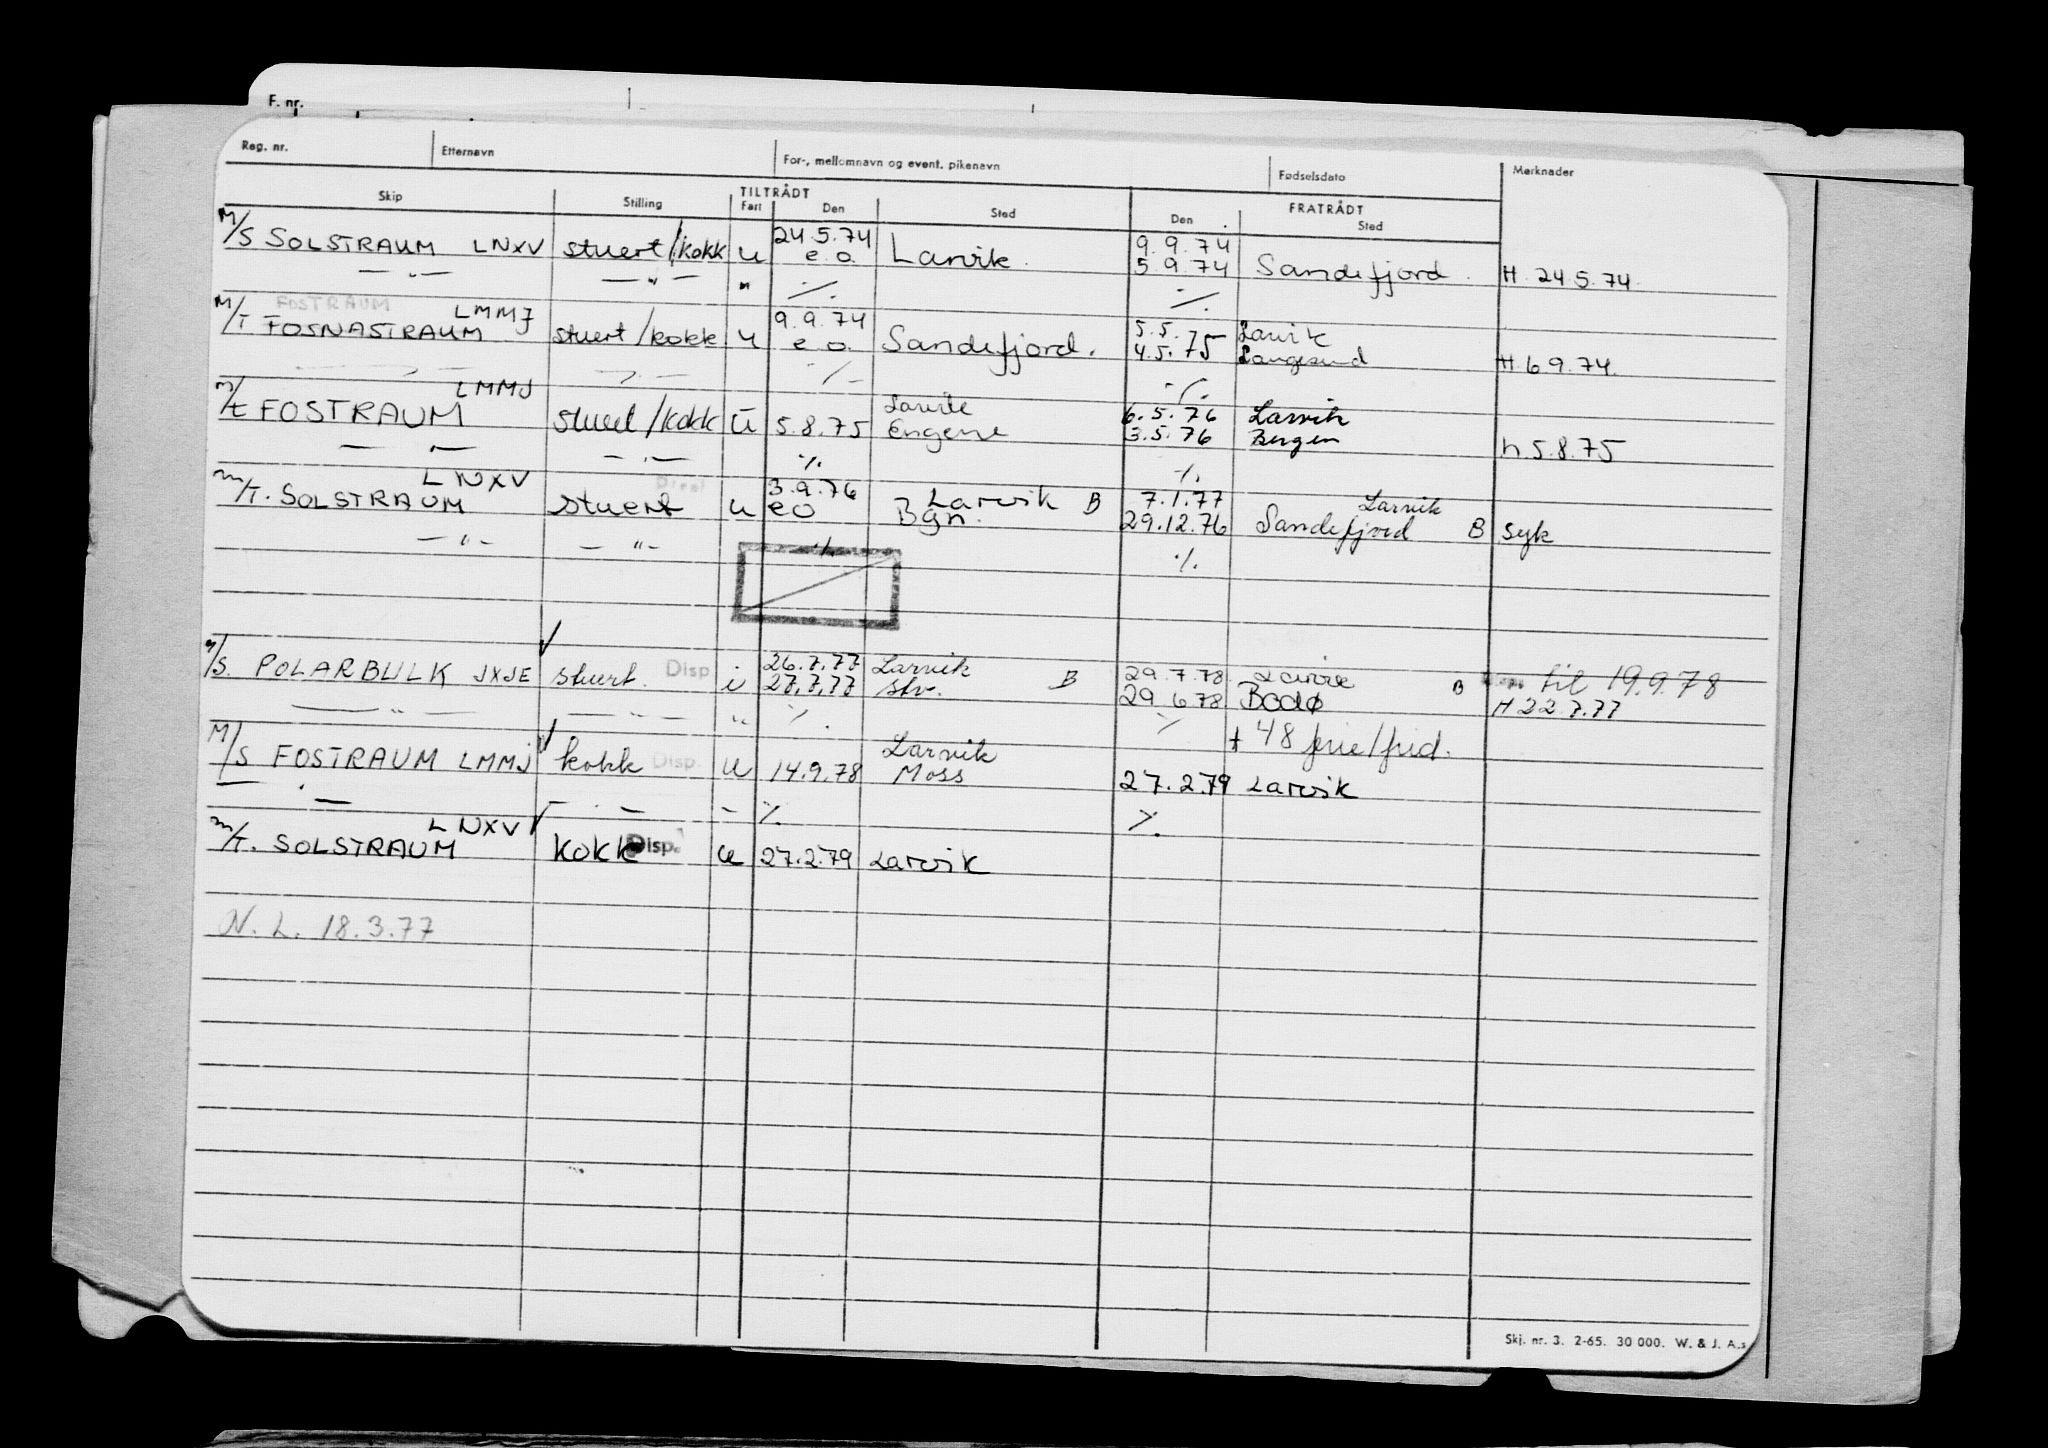 F. nr.
Reg. nr. Etternavn For-, mellomnavn og event. pikenavn Fødselsdato Merknader
TILTRÅDT FRATRÅDT
Skip Stilling Fart Den Sted Den Sted
24.5.74 9.9.74
M/S SOLSTRAUM LNXV stuert/kokk u e.o. Larvik 5.9.74 Sandefjord. H. 24.5.74.
— " — — " — " ·/. ·/.
FOSTRAUM LMMJ 9.9.74 5.5. Larvik
M/T FOSNASTRAUM stuert/kokk u e.o. Sandefjord. 4.5.75 Langesund H. 6.9.74.
— " — — " — ·/. ·/.
LMMJ Larvik 6.5.76 Larvik
M/t FOSTRAUM stuert/kokk U 5.8.75 Engene 3.5.76 Bergen h.5.8.75
— " — — " — ·/. ·/.
LNXV 3.9.76 Larvik B 7.1.77 Larvik
m/T. SOLSTRAUM stuert u eo Bgn. 29.12.76 Sandefjord B syk
— " — — " — ·/. ·/.
26.7.77 Larvik 29.7.78 Larvik til 19.9.78
M/S. POLARBULK JXJE stuert. Disp i 27.7.77 Stv. B 29.6.78 Bodø B H 22.7.77
— " — — " — " ·/. ·/. + 48 frid.
Larvik
M/S FOSTRAUM LMMJ kokk Disp. U 14.9.78 Moss 27.2.79 Larvik
— " — — " — — ·/. ·/.
LNXV
m/T. SOLSTRAUM kokk Disp. u 27.2.79 Larvik
N. L. 18.3.77
Skj. nr. 3. 2-65. 30 000. W. & J. A.s